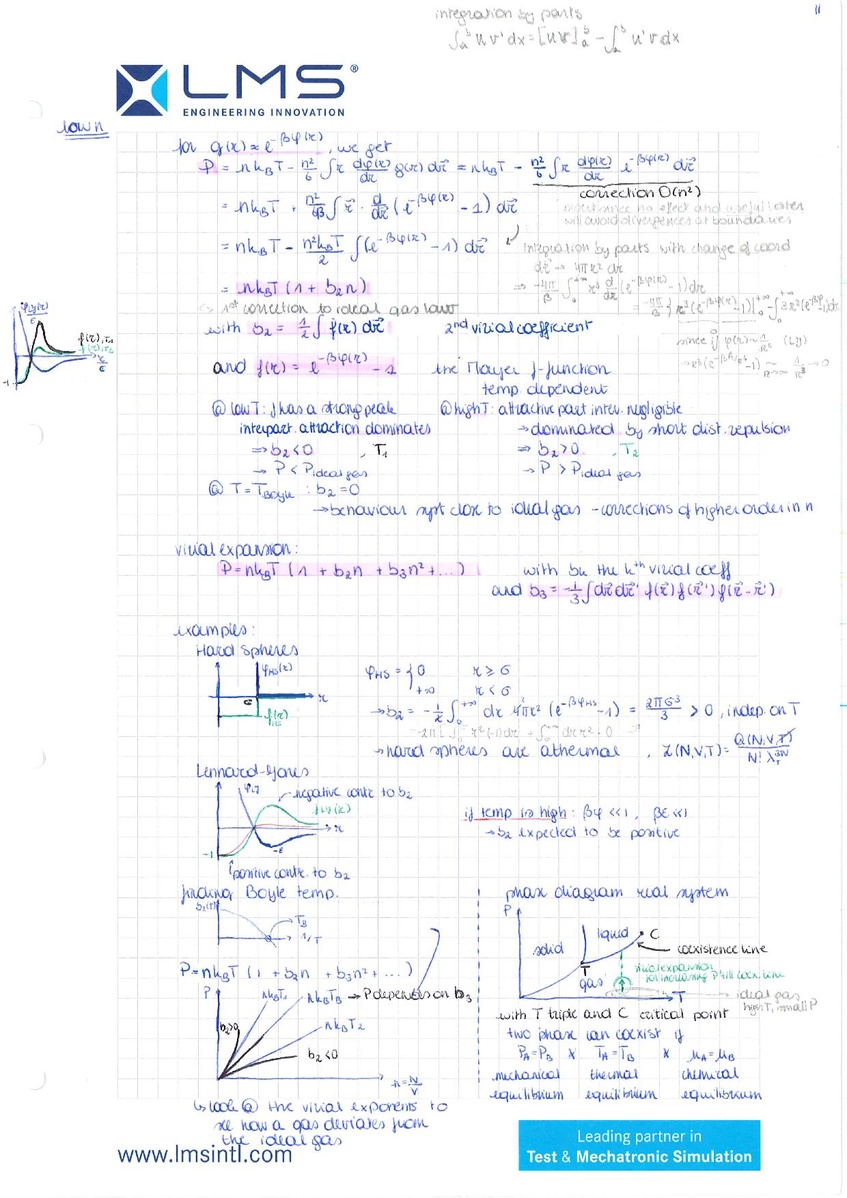 integration by parts
∫ₐᵇ u v' dx = [uv]ₐᵇ - ∫ₐᵇ u'v dx
11
LMS®
ENGINEERING INNOVATION
low n
for g(r) ≈ e^{-βφ(r)}, we get
P = nk_BT - n²/6 ∫ r dφ(r)/dr g(r) dr⃗ = nk_BT - n²/6 ∫ r dφ(r)/dr e^{-βφ(r)} dr⃗
correction O(n²)
= nk_BT + n²/6β ∫ r⃗ · d/dr⃗ (e^{-βφ(r)} - 1) dr⃗
will avoid divergences at boundaries
= nk_BT - n²k_BT/2 ∫ (e^{-βφ(r)} - 1) dr⃗
integration by parts with change of coord
dr⃗ → 4πr² dr
= nk_BT (1 + b₂n)
↳ 1st correction to ideal gas law
with b₂ = -1/2 ∫ f(r) dr⃗ 2nd virial coefficient
and f(r) = e^{-βφ(r)} - 1 the Mayer f-function
temp. dependent
φ(r) f(r), T₁ f(r), T₂ r/σ -1
since if φ(r) ~ 1/r⁶ (LJ)
@ low T: f has a strong peak @ high T: attractive part inter. negligible
interpart. attraction dominates → dominated by short dist. repulsion
⇒ b₂ < 0 , T₁ ⇒ b₂ > 0 , T₂
→ P < P ideal gas → P > P ideal gas
@ T = T_Boyle : b₂ = 0
→ behaviour syst close to ideal gas - corrections of higher order in n
virial expansion:
P = nk_BT (1 + b₂n + b₃n² + ...) with b_k the kth virial coeff
and b₃ = -1/3 ∫ dr⃗ dr⃗' f(r⃗) f(r⃗') f(r⃗ - r⃗')
examples:
Hard spheres
φ_HS(r) σ r f(r)
φ_HS = { 0 r ≥ σ
+∞ r < σ
→ b₂ = -1/2 ∫₀^{+∞} dr 4πr² (e^{-βφ_HS} - 1) = 2πσ³/3 > 0, indep. on T
→ hard spheres are athermal , Z(N,V,T) = Q(N,V,T)/N! λ_T^{3N}
Lennard-Jones
φ_LJ negative contr. to b₂
f_LJ(r) r -1 -ε
if temp is high: βφ << 1, βε << 1
→ b₂ expected to be positive
positive contr. to b₂
finding Boyle temp.
b₂(T) T_B 1/T
P = nk_BT (1 + b₂n + b₃n² + ...)
P nk_BT₁ nk_BT_B → P depends on b₃
nk_BT₂
b₂>0 b₂<0
n = N/V
↳ look @ the virial exponents to
see how a gas deviates from
the ideal gas
phase diagram real system
P solid liquid C
coexistence line
T gas
virial expansion
for increasing P till coex. line
T ideal gas
high T, small P
with T triple and C critical point
two phase can coexist if
P_A = P_B & T_A = T_B & μ_A = μ_B
mechanical thermal chemical
equilibrium equilibrium equilibrium
www.lmsintl.com
Leading partner in
Test & Mechatronic Simulation